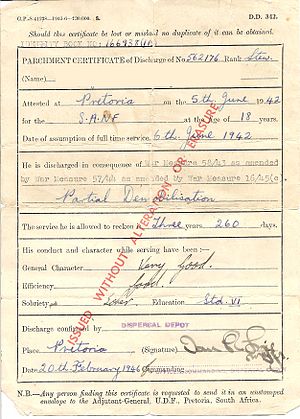 G.P.-S.41978—1945-6—120,000. S. D.D. 342.
Should this certificate be lost or mislaid no duplicate of it can be obtained.
IDENTITY BOOK NO:
PARCHMENT CERTIFICATE of Discharge of No. 562176 Rank Stew.
(Name)
Attested at Pretoria on the 5th June 1942
for the S.A.N.F at the Age of 18 years.
Date of assumption of full time service. 6th June 1942
He is discharged in consequence of War Measure 58/43 as amended
by War Measure 57/44 as amended by War Measure 16/45(c)
Partial Demobilisation
The service he is allowed to reckon is Three years. 260 days.
His conduct and character while serving have been:—
General Character Very Good.
Efficiency Good.
Sobriety Sober. Education Std. VI
Discharge confirmed by DISPERSAL DEPOT
Place Pretoria (Signature)
Date 20th February 1946 Commanding
N.B.—Any person finding this certificate is requested to send it in an unstamped
envelope to the Adjutant-General, U.D.F., Pretoria, South Africa.
ISSUED WITHOUT ALTERATION OR ERASURE